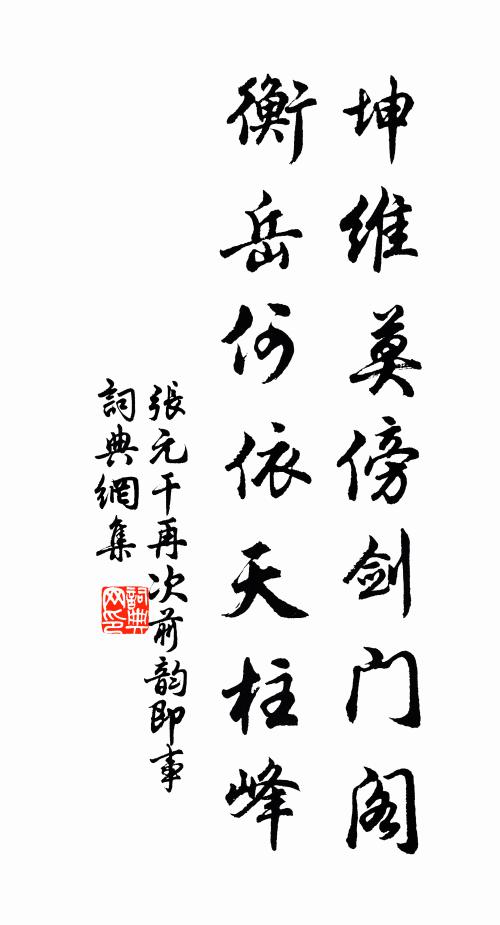 坤維莫傍剑门阁
衡岳何依天柱峰
張元干再次前韵即事
詞典網集
詞典网印